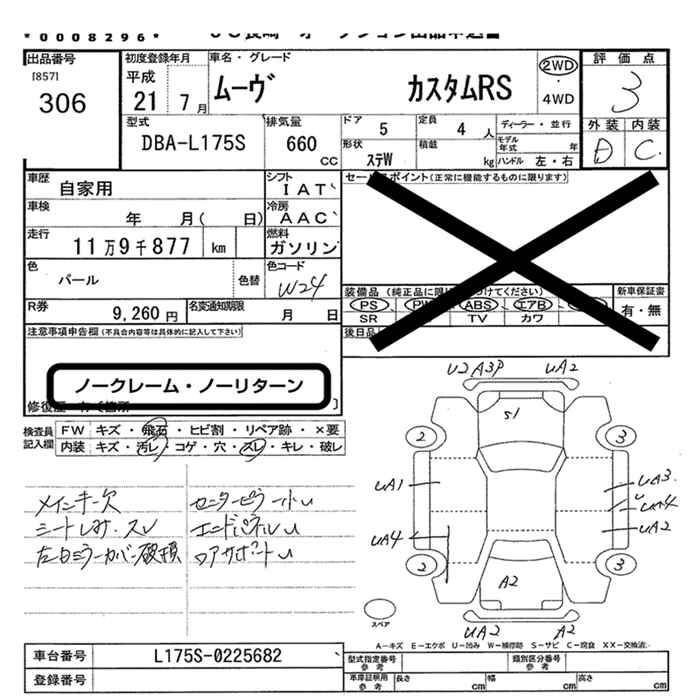 *0008296*
出品番号
[857]
306
初度登録年月
平成
21 7 月
車名・グレード
ムーヴ カスタムRS
2WD
・
4WD
評価点
3
型式
DBA-L175S
排気量
660
CC
ドア
5
定員
4 人
ディーラー・並行
モデル年式 年
形状
ステW
積載
kg
ハンドル 左・右
外装 内装
D C
車歴
自家用
シフト
IAT
車検
年 月( 日)
冷房
AAC
走行
11万9千877 km
燃料
ガソリン
色
パール
色替
色コード
W24
R券
9,260 円
名変通知期限
月 日
セールスポイント(正常に機能するものに限ります)
装備品 (純正品に限り
つけてください)
PS PW ABS エアB
SR TV カワ
新車保証書
有・無
後日品
注意事項申告欄(不具合内容等は具体的に記入して下さい)
ノークレーム・ノーリターン
検査員
記入欄
FW キズ・飛石・ヒビ割・リペア跡・×要
内装 キズ・汚レ・コゲ・穴・スレ・キレ・破レ
メインキー欠
シートしみ・スレ
左白ミラーカバー破損
センターピラー小U
エンドパネルU
ロアサポートU
U2 A3P UA2
S1
2 3
UA1 UA3
U
UA4
UA4 UA2
2 3
A2
UA2 A2
スペア
A-キズ E-エクボ U-凹み W-補修跡 S-サビ C-腐食 XX-交換済
車台番号
L175S-0225682
登録番号
型式指定番号
参考
類別区分番号
参考
車庫証明用
参考
長さ cm
幅 cm
高さ cm